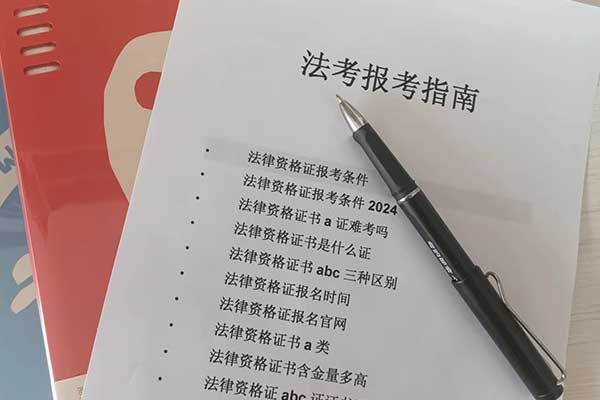 法考报考指南
法律资格证报考条件
法律资格证报考条件 2024
法律资格证书 a 证难考吗
法律资格证书是什么证
法律资格证书 abc 三种区别
法律资格证报名时间
法律资格证报名官网
法律资格证书 a 类
法律资格证书含金量多高
法律资格证 abc 证证书